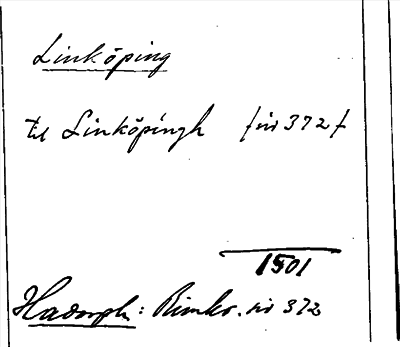 Linköping
til Linköpingh [nr 372]
1501
Hadorph: Rimkr. nr 372